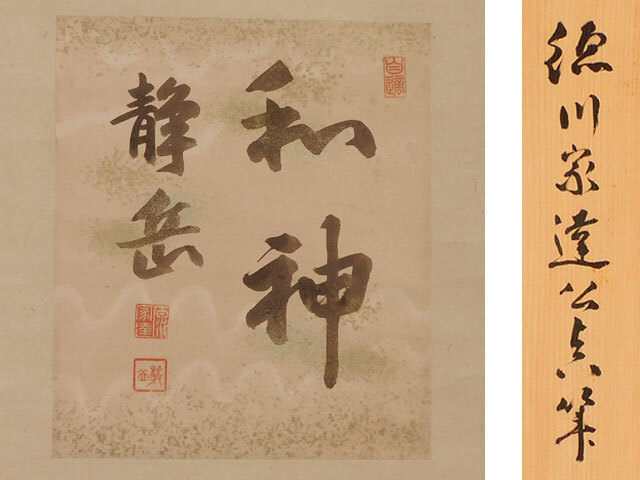 和神
静岳
徳川家達公真筆